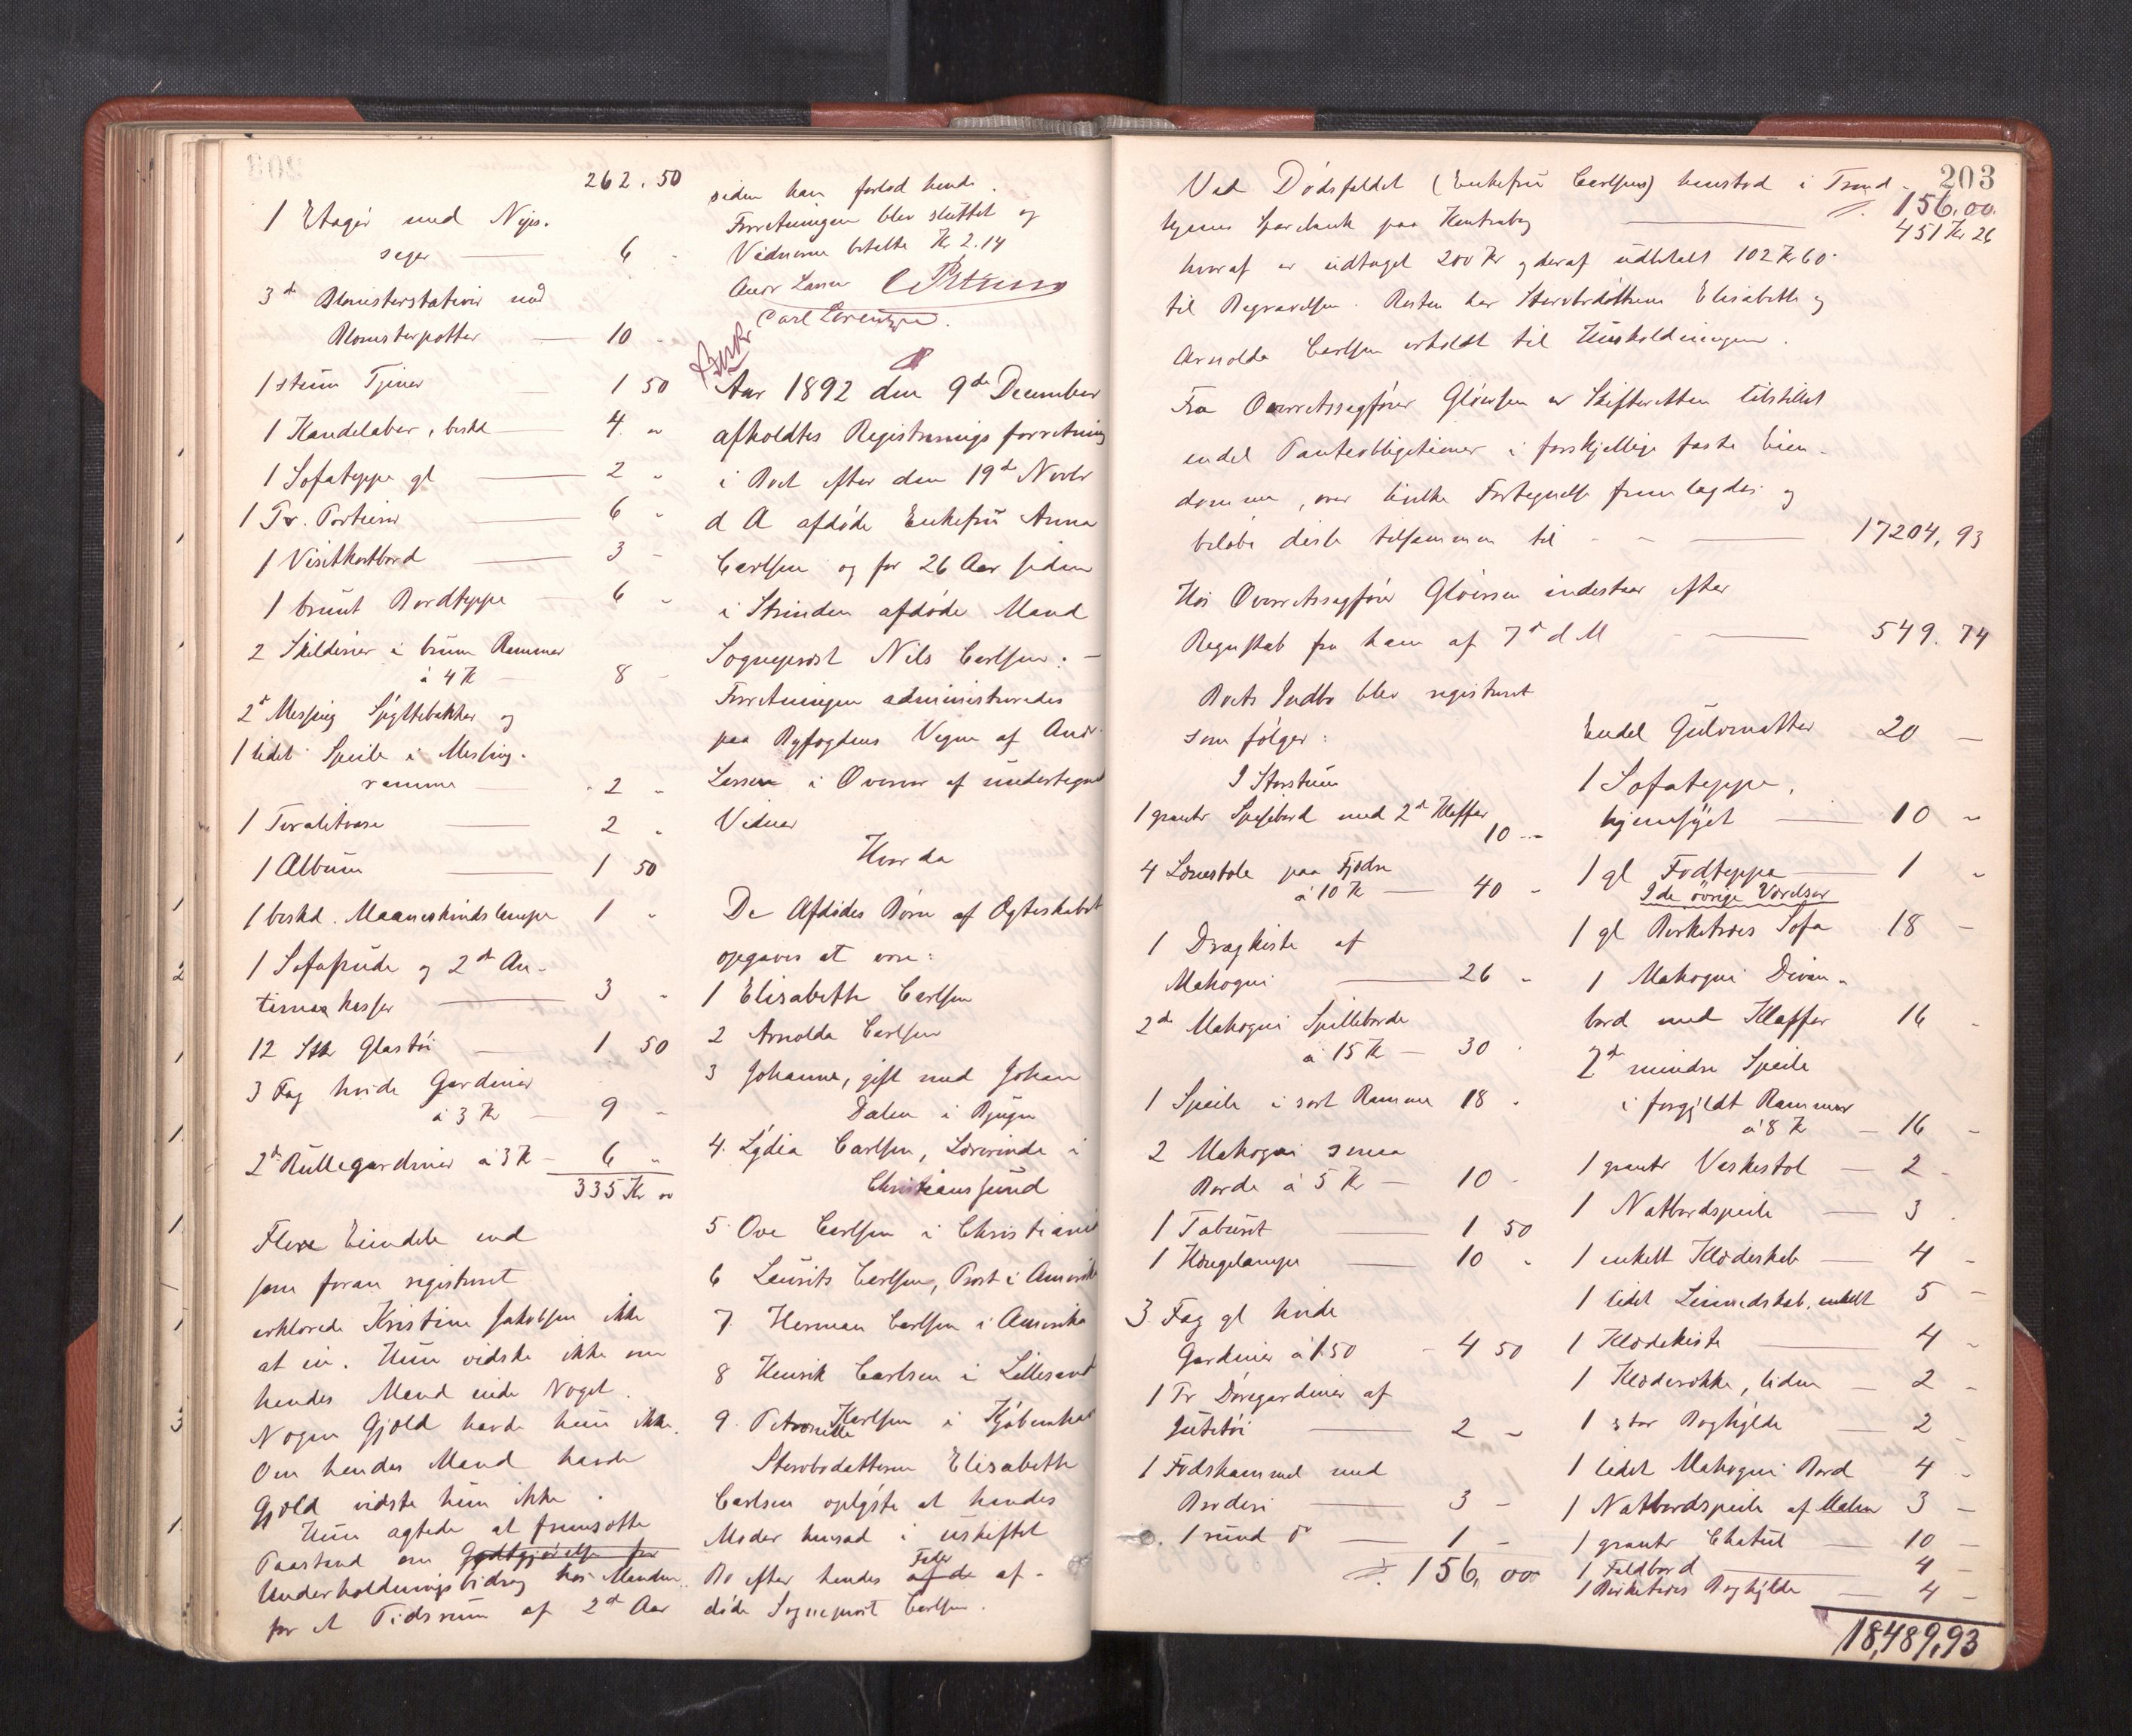 262.50
1 Etagér med Nips-
sager — 6 "
3de Blomsterstativer med
Blomsterpotter — 10 "
1 stum Tjener — 1 50
1 Kandelaber, beskd — 4 "
1 Sofateppe gl — 2 "
1 Pr. Portierer — 6 "
1 Visitkortbord — 3 -
1 brunt Bordteppe — 6 "
2 Skilderier i brune Rammer
à 4 Kr — 8 -
2de Messing og
1 lidet Speile i Messing-
ramme — 2 "
1 Vase — 2 "
1 Album — 1 50
1 beskd. Maaneskindslampe 1 "
1 Sofapude og 2de An-
timakasser — 3 "
12 Stk Glastøi — 1 50
3 Fag hvide Gardiner
à 3 Kr — 9 -
2de Rullegardiner à 3 Kr — 6 "
335 Kr "
Flere Eiendele end
som foran registreret
erklærede Kristine Jakobsen ikke
at eie. Hun vidste ikke om
hendes Mand eiede Noget.
Nogen Gjæld havde hun ikke.
Om hendes Mand havde
Gjæld vidste hun ikke.
Hun agtede at fremsætte
Paastand om Godtgjørelse for
Underholdningsbidrag hos Manden
for et Tidsrum af 2de Aar
siden han forlod hende.
Forretningen blev sluttet og
Vidnerne betalte Kr 2.14
Andr Lassen
Carl Lorentzen.
Aar 1892 den 9de December
afholdtes Registreringsforretning
i Boet efter den 19de Novbr
d A afdøde Enkefru Anna
Carlsen og for 26 Aar siden
i Strinden afdøde Mand
Sogneprest Nils Carlsen. —
Forretningen administreredes
paa Byfogdens Vegne af Andr
Lassen i Overvær af undertegnede
Vidner
Hvorda
De Afdødes Børn af Ægteskabet
opgaves at være:
1 Elisabeth Carlsen
2 Arnolda Carlsen
3 Johanna, gift med Johan
Dalen i Bjugn
4. Lydia Carlsen, Lærerinde i
Christianssund
5. Ove Carlsen i Christiania
6 Laurits Carlsen, Prest i Amerika
7. Herman Carlsen i Amerika
8 Henrik Carlsen i Lillesand
9. Petronelle Karlsen i Kjøbenhavn
Stervbodatteren Elisabeth
Carlsen oplyste at hendes
Moder hensad i uskiftet
Bo efter hendes Fader af-
døde Sogneprest Carlsen.
203
Ved Dødsfaldet (Enkefru Carlsens) henstod i Trond-
hjems Sparebank paa Kontrabog —
156.00.
451 Kr 26
hvoraf er udtaget 200 Kr og deraf udbetalt 102 Kr 60
til Begravelsen. Resten har Stervbodøttrene Elisabeth og
Arnolda Carlsen erholdt til Husholdningen.
Fra Overretssagfører Gløersen er Skifteretten tilstillet
endel Panteobligationer i forskjellige faste Eien-
domme, over hvilke Fortegnelse fremlagdes og
beløbe disse tilsammen til — 17204,93
Hos Overretssagfører Gløersen indestaar efter
Regnskab fra ham af 7de d M — 549.74
Boets Indbo blev registreret
som følger:
I Storstuen
1 grantr Spisebord med 2de Klaffer
10 -
4 Lænestole paa Fjædre
à 10 Kr — 40 -
1 Dragkiste af
Mahogni — 26 -
2de Mahogni Spilleborde
à 15 Kr — 30 -
1 Speile i sort Ramme 18 -
2 Mahogni smaa
Borde à 5 Kr — 10 -
1 Taburet — 1 50
1 Hængelampe — 10 -
3 Fag gl hvide
Gardiner à 1 50 - 4 50
1 Pr Dørgardiner af
Jutetøi — 2 -
1 Fodskammel med
Broderi — 3 -
1 rund do — 1 -
156,00
Endel Gulvmatter 20 —
1 Sofateppe,
hjemsyet — 10 -
1 gl Fodteppe — 1 -
I de øvrige Værelser
1 gl Birketræes Sofa 18 -
1 Mahogni Divan-
bord med Klaffer 16 -
2de mindre Speile
i forgyldt Rammer
à 8 Kr — 16 -
1 grantr Vaskestol — 2 -
1 Natbordspeile — 3 -
1 enkelt Klædeskab — 4 -
1 lidet Linnedskab, enkelt 5 -
1 Klædekiste — 4 -
1 Klæderække, liden — 2 -
1 stor Boghylde — 2 -
1 lidet Mahogni Bord 4 -
1 Natbordspeile af Malm 3 -
1 grantr Chatul — 10 -
1 Foldbord — 4 -
1 Birketræes Boghylde — 4 -
18,489,93